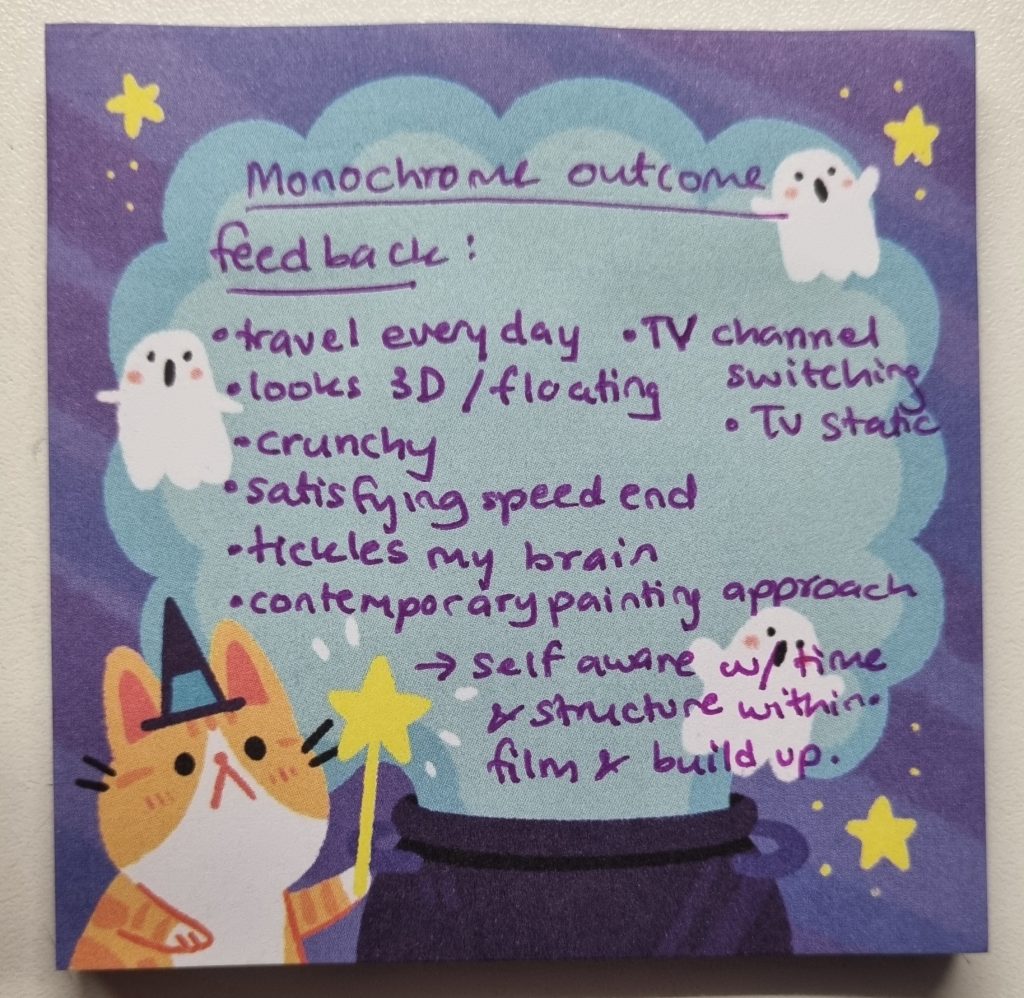 Monochrome outcome
feedback:
•travel everyday
•looks 3D/floating
•crunchy
•satisfying speed end
•tickles my brain
•contemporary painting approach
→ self aware w/ time
& structure within.
film & build up.
•TV channel
switching
• TV static